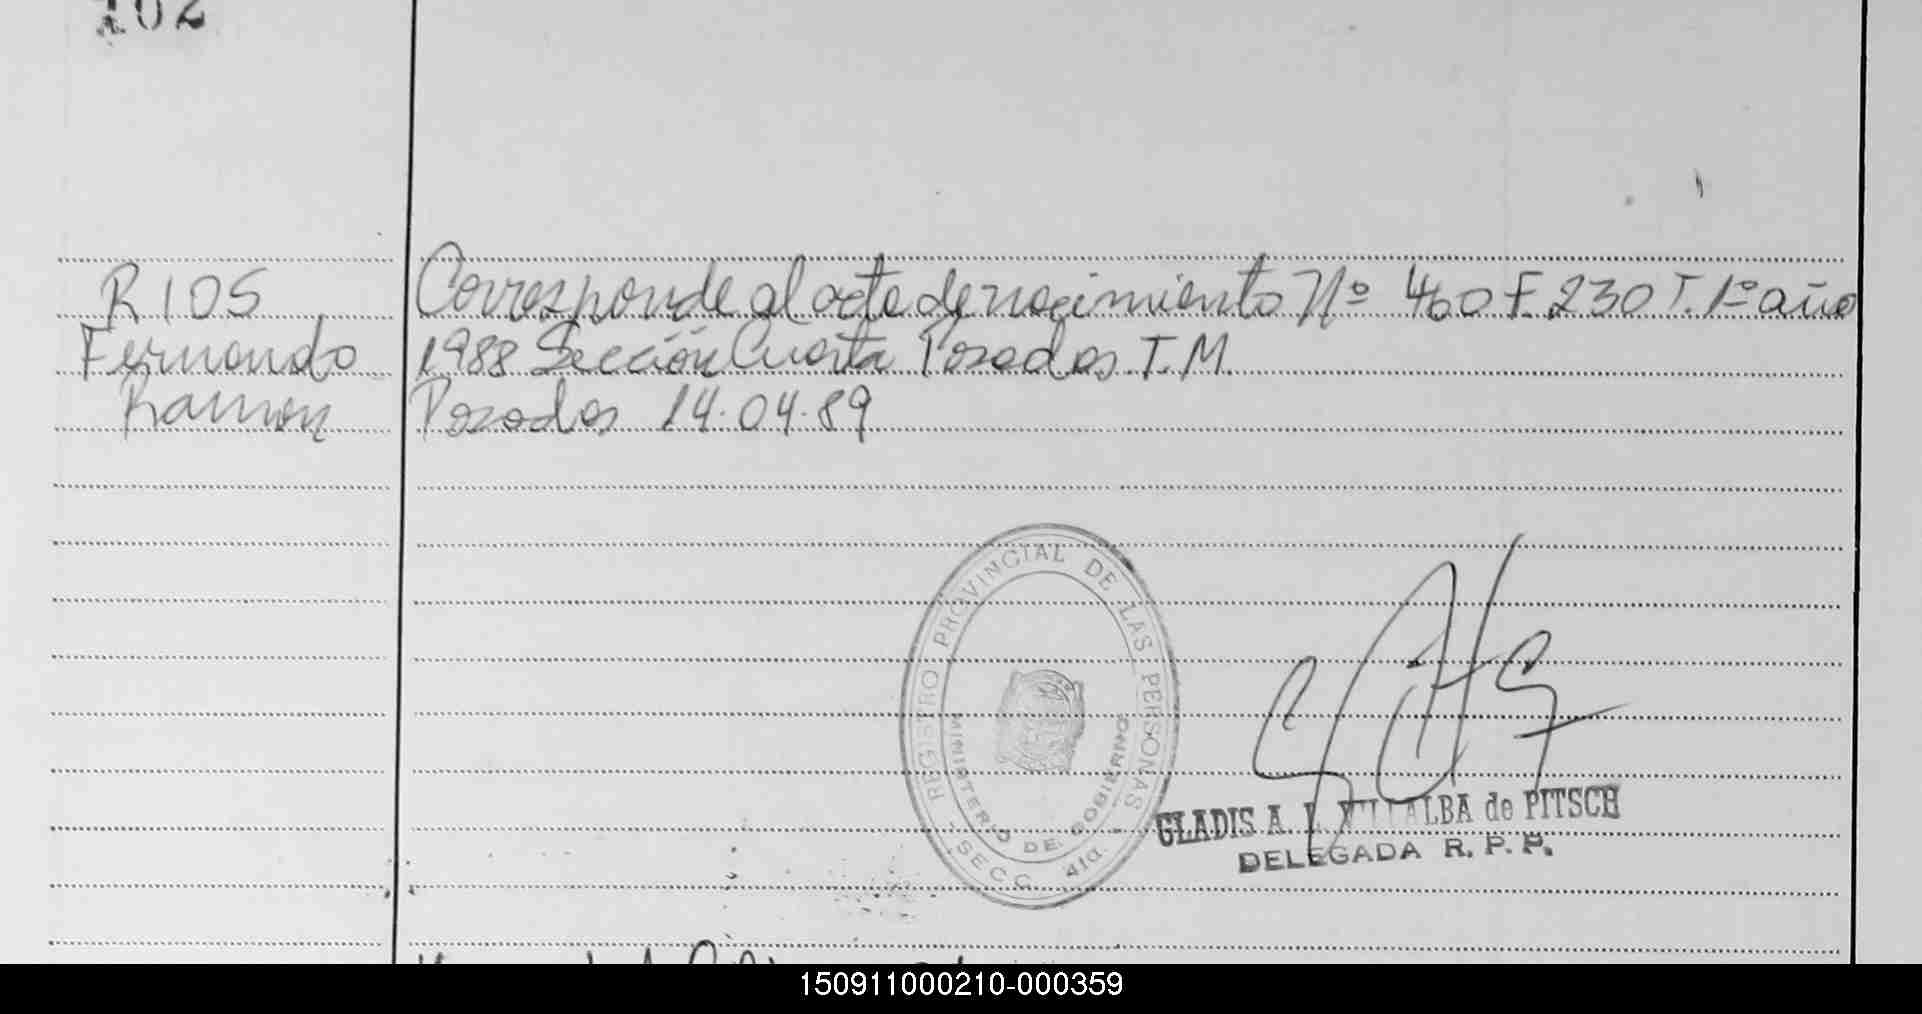 102
RIOS
Fernando
Ramon
Corresponde al acta de nacimiento Nº 460 F. 230 T. 1º año
1988 Sección Cuarta Posadas. T. M.
Posadas 14.04.89
REGISTRO PROVINCIAL DE LAS PERSONAS
MINISTERIO DE GOBIERNO
- SECC. 4ta. -
GLADIS A. L. VILLALBA de PITSCH
DELEGADA R. P. P.
150911000210-000359